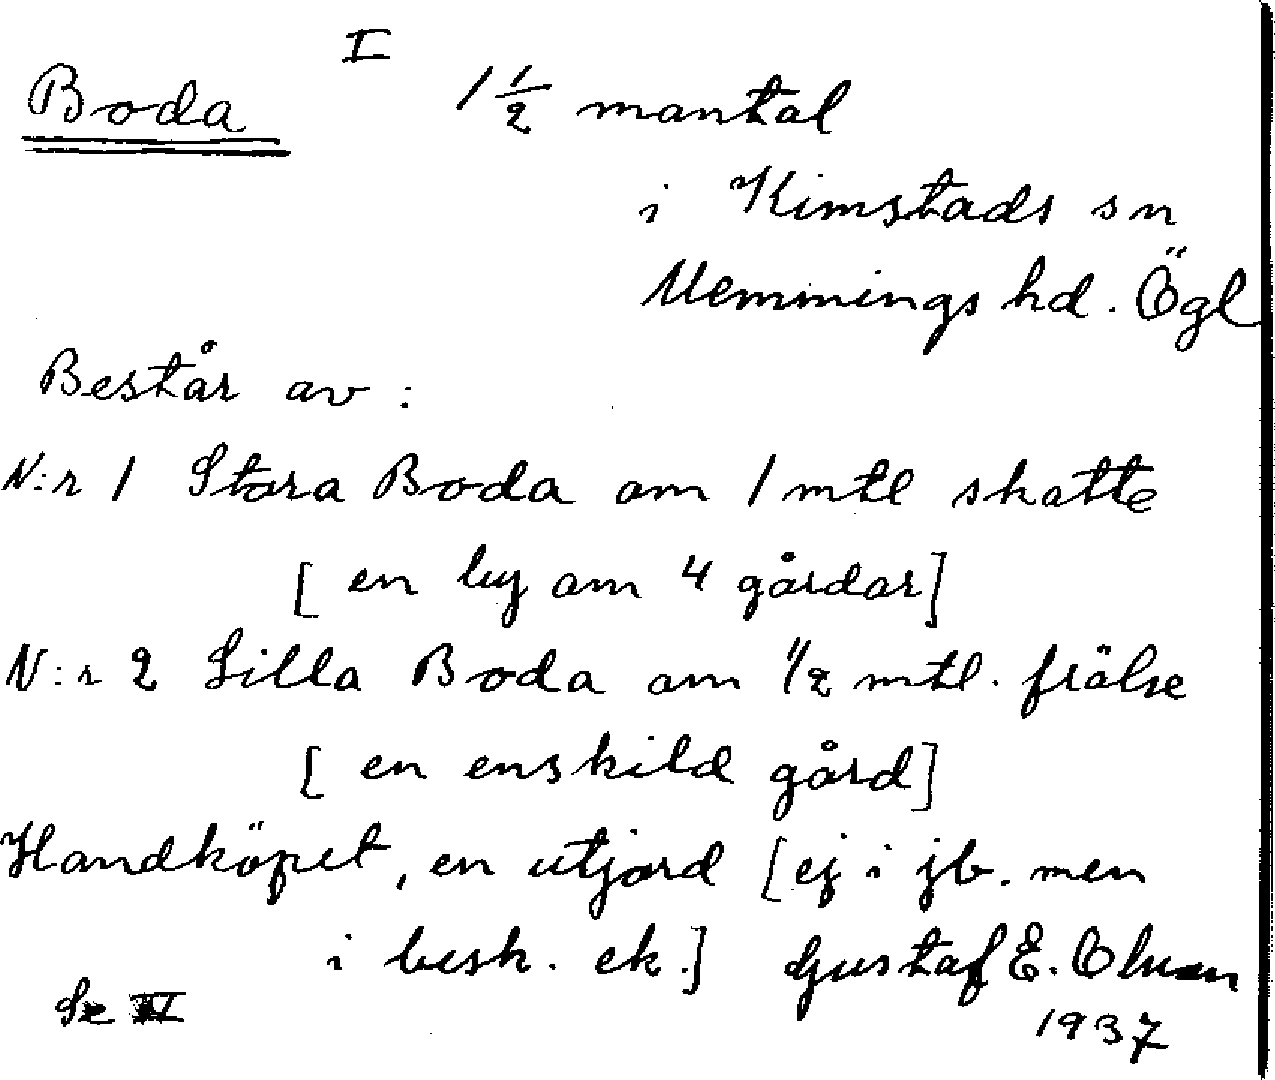 I
Boda 1 1/2 mantal
i Kimstads sn
Memmings hd. Ögl
Består av :
N:r 1 Stora Boda om 1 mtl skatte
[ en by om 4 gårdar]
N:r 2 Lilla Boda om 1/2 mtl. frälse
[ en enskild gård]
Handköpet, en utjord [ej i jb. men
i besk. ek.] Gustaf E. Olsson
Se II
1937